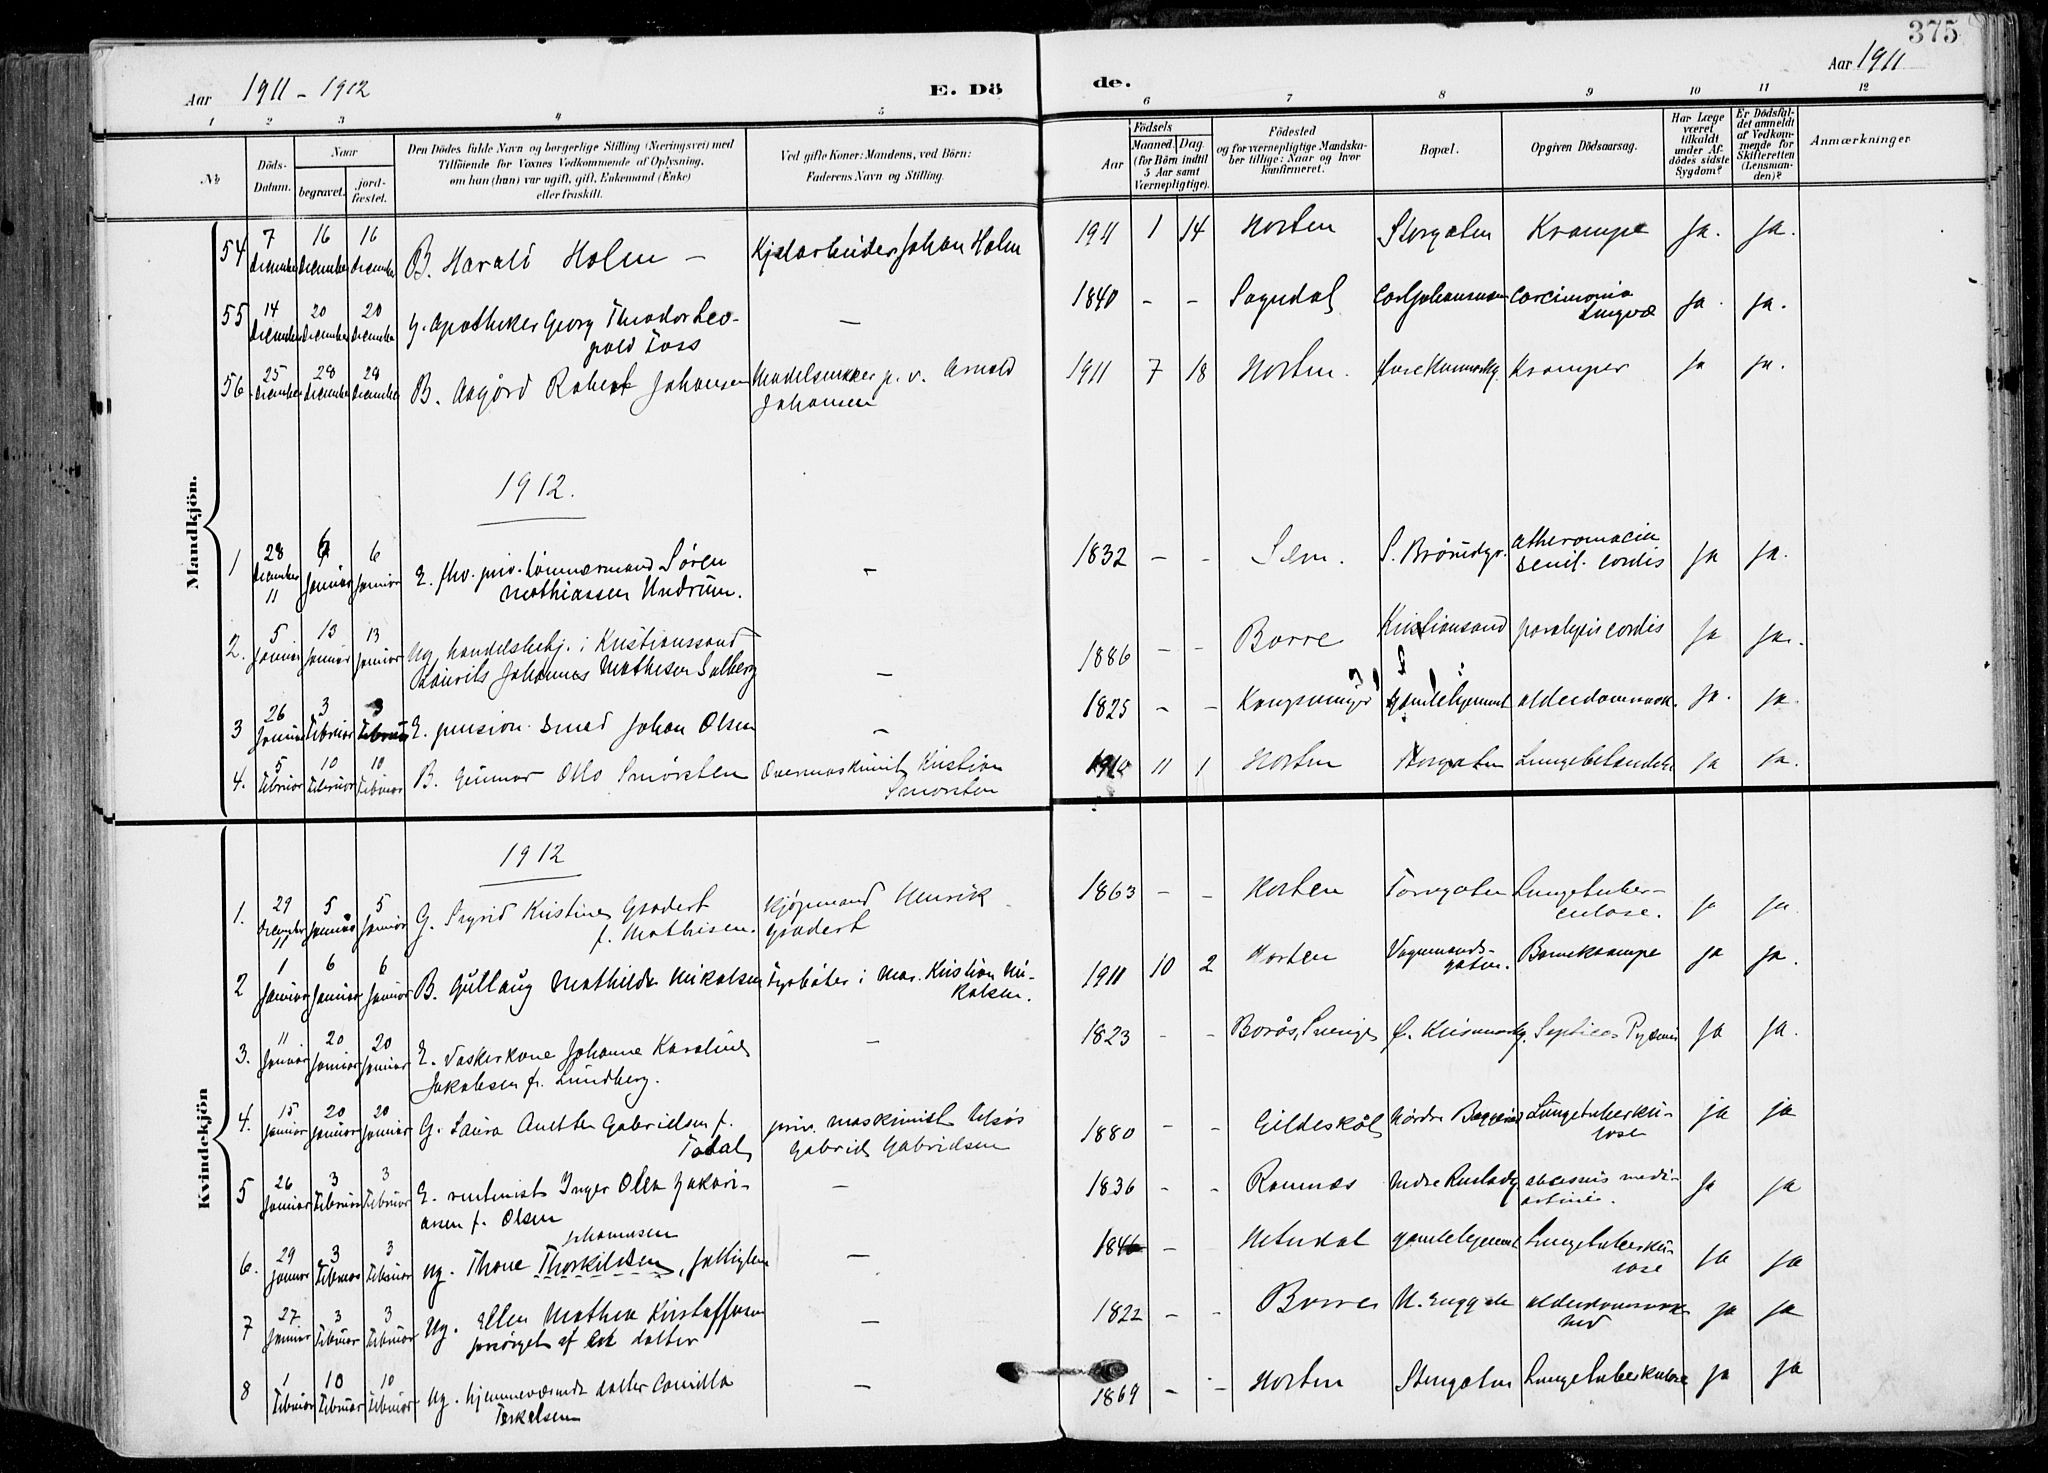 375
Aar 1911 - 1912
E. Dö
de.
Aar 1911
1 2 3 4 5 6 7 8 9 10 11 12
№
Döds-Datum.
Naar
begravet.
jord-fæstet.
Den Dödes fulde Navn og borgerlige Stilling (Næringsvei) med
Tilföiende for Voxnes Vedkommende af Oplysning,
om han (hun) var ugift, gift, Enkemand (Enke)
eller fraskilt.
Ved gifte Koner: Mandens, ved Börn:
Faderens Navn og Stilling.
Födsels
Aar
Maaned. Dag.
(for Börn indtil
5 Aar samt
Værnepligtige).
Födested
og for værnepligtige Mandska-
ber tillige: Naar og hvor
konfirmeret.
Bopæl.
Opgiven Dödsaarsag.
Har Læge
været
tilkaldt
under Af-
dödes sidste
Sygdom?
Er Dödsfal-
det anmeldt
af Vedkom-
mende for
Skifteretten
(Lensman-
den)?
Anmærkninger
Mandkjön.
54 7 December 16 December 16 December B. Harald Holm - Johan Holm 1911 1 14 Horten Storgaten Krampe Ja. Ja.
55 14 December 20 December 20 December G. Apotheker Georg Theodor Leo-
pold Foss - 1840 - - Sogndal Ja. Ja.
56 25 December 28 December 28 December B. Asgård Robert Johansen p. v. Arnold
Johansen 1911 7 18 Horten. Kramper Ja Ja.
1912.
1 28 December 11 6 Januar 6 Januar E. fhv. priv. tømmermand Søren
Mathiassen Undrum. - 1832 - - Sem. senil. cordis Ja Ja.
2. 5 Januar 13 Januar 13 Januar Ug. handelsbetj. i Kristianssand
Lauritz Johannes Mathisen Solberg - 1886 - - Borre Kristiansand paralysis cordis Ja Ja.
3 26 Januar 3 Februar 3 Februar E. pension. smed Johan Olsen - 1825 - - Gamlehjemmet Ja. Ja.
4. 5 Februar 10 Februar 10 Februar B. Gunnar Otto Smørsten Kristian
Smørsten 1910 11 1 Horten Storgaten Ja Ja.
Kvindekjön
1912
1. 29 December 11 5 Januar 5 Januar G. Sigrid Kristine
f. Mathisen. Kjøpmand Henrik
1863 - - Horten Torvgaten Lungetuber-
culose. Ja Ja.
2 1 Januar 6 Januar 6 Januar B. Gullaug Mathilde Nikolsen Fyrbøter i Mar. Kristian Ni-
kolsen. 1911 10 2 Horten Vognmands-
gaten. Barnekrampe Ja Ja.
3. 11 Januar 20 Januar 20 Januar E. Vaskerkone Johanne Karoline
Jakobsen f. Lundberg. - 1823 - - Borås, Sverige Ja Ja.
4. 15 Januar 20 Januar 20 Januar G. Laura Anette Gabrielsen f.
priv. maskinist
Gabriel Gabrielsen 1880 - - Gildeskål Nordre Lungetuberku-
lose Ja Ja
5 26 Januar 3 Februar 3 Februar E. rentenist Inger Olea Zakari-
asen f. Olsen - 1836 - - Ramnæs Ja Ja
6. 29 Januar 3 Februar 3 Februar Ug. Thone Johannesen
Thorkildsen, fattiglem - 1846 - Gamlehjemmet Lungetuberku-
lose Ja Ja
7 27 Januar 3 Februar 3 Februar Ug. Ellen Mathea Kristoffersen
forsørget af en datter - 1822 - - Borre Ja Ja
8 1 Februar 10 Februar 10 Februar Ug. hjemmeværende datter Camilla
Terkelsen - 1869 - - Horten Storgaten Lungetuberkulose Ja Ja